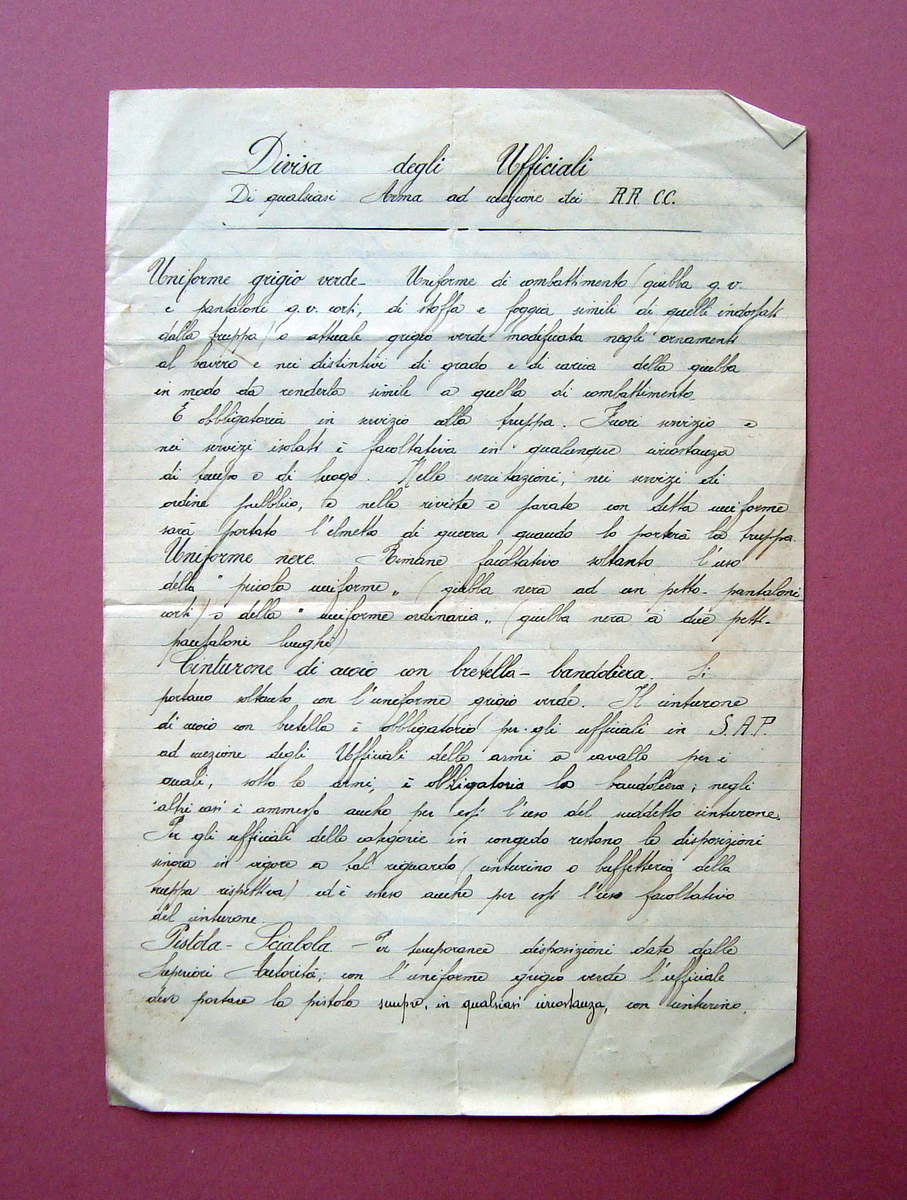 Divisa degli Ufficiali
Di qualsiasi Arma ad eccezione dei RR CC.
Uniforme grigio verde - Uniforme di combattimento (giubba g.v.
e pantaloni g.v. corti, di stoffa e foggia simili di quelli indossati
dalla truppa) o attuale grigio verde modificata negli ornamenti
al bavero e nei distintivi di grado e di carica della giubba
in modo da renderla simile a quella di combattimento
È obbligatoria in servizio colla truppa. Fuori servizio e
nei servizi isolati è facoltativa in qualunque circostanza
di tempo e di luogo. Nelle esercitazioni, nei servizi di
ordine pubblico, e nelle riviste e parate con detta uniforme
sarà portato l'elmetto di guerra quando lo porterà la truppa.
Uniforme nere. Rimane facoltativo soltanto l'uso
della "piccola uniforme„ (giubba nera ad un petto - pantaloni
corti) e della "uniforme ordinaria„ (giubba nera a due petti-
pantaloni lunghi)
Cinturone di cuoio con bretella - bandoliera. Si
portano soltanto con l'uniforme grigio verde. Il cinturone
di cuoio con bretella è obbligatorio per gli ufficiali in S.A.P.
ad eccezione degli Ufficiali delle armi a cavallo per i
quali, sotto le armi, è obbligatoria la bandoliera; negli
altri casi è ammesso anche per essi l'uso del suddetto cinturone.
Per gli ufficiali delle categorie in congedo restano le disposizioni
sinora in vigore a tal riguardo (cinturino o buffetteria della
truppa rispettiva) ed è esteso anche per essi l'uso facoltativo
del cinturone.
Pistola - Sciabola - Per temporanee disposizioni date dalle
Superiori Autorità, con l'uniforme grigio verde l'ufficiale
deve portare la pistola sempre, in qualsiasi circostanza, con cinturino.